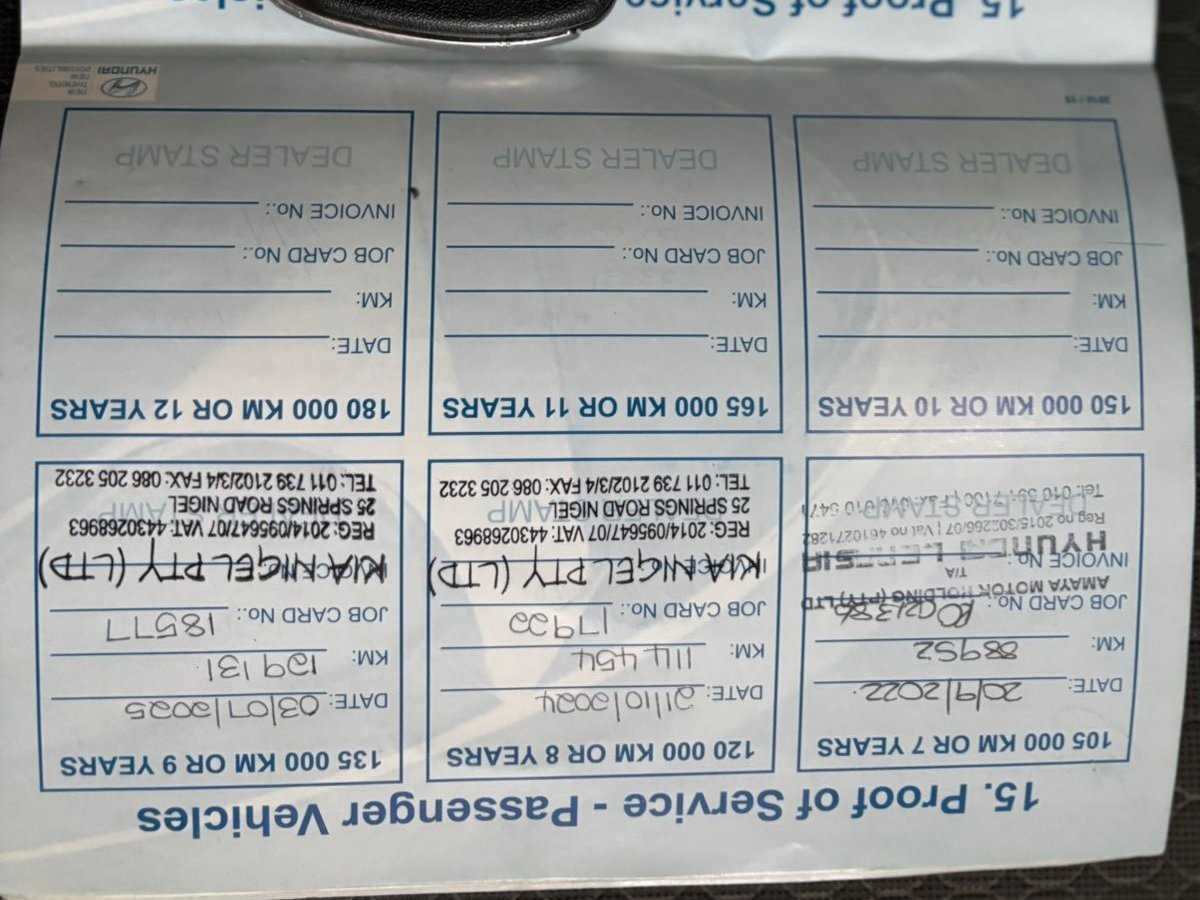 15. Proof of Service - Passenger Vehicles
105 000 KM OR 7 YEARS
DATE: 20/9/2022
KM: 88952
JOB CARD No.:
AMAYA MOTOR HOLDING (PTY) LTD
T/A
INVOICE No.:
HYUNDAI
Reg no 2015/302266/07 | Vat no 4610271282
DEALER STAMP
120 000 KM OR 8 YEARS
DATE: 21/10/2024
KM: 114 454
JOB CARD No.: 17922
INVOICE No.:
KIA NIGEL PTY (LTD)
REG: 2014/095647/07 VAT: 4430268963
DEALER STAMP
25 SPRINGS ROAD NIGEL
TEL: 011 739 2102/3/4 FAX: 086 205 3232
135 000 KM OR 9 YEARS
DATE: 03/07/2025
KM: 129 131
JOB CARD No.: 18577
INVOICE No.:
KIA NIGEL PTY (LTD)
REG: 2014/095647/07 VAT: 4430268963
DEALER STAMP
25 SPRINGS ROAD NIGEL
TEL: 011 739 2102/3/4 FAX: 086 205 3232
150 000 KM OR 10 YEARS
DATE:
KM:
JOB CARD No.:
INVOICE No.:
DEALER STAMP
165 000 KM OR 11 YEARS
DATE:
KM:
JOB CARD No.:
INVOICE No.:
DEALER STAMP
180 000 KM OR 12 YEARS
DATE:
KM:
JOB CARD No.:
INVOICE No.:
DEALER STAMP
HYUNDAI
NEW THINKING.
NEW POSSIBILITIES.
15. Proof of Service